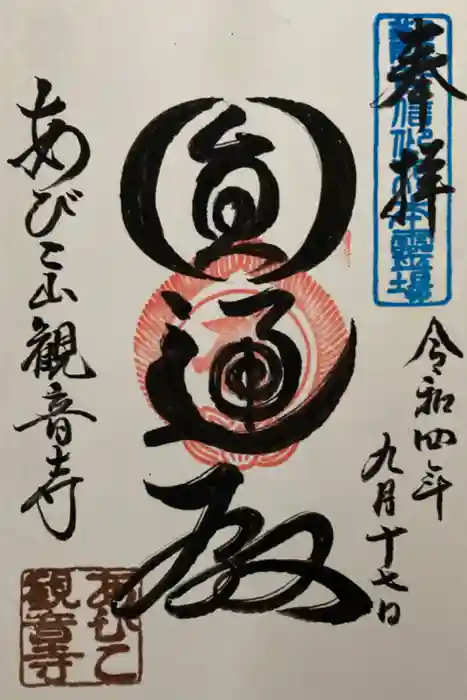 奉拝
令和四年
九月十七日
圓通殿
あびこ山観音寺
あびこ
観音寺